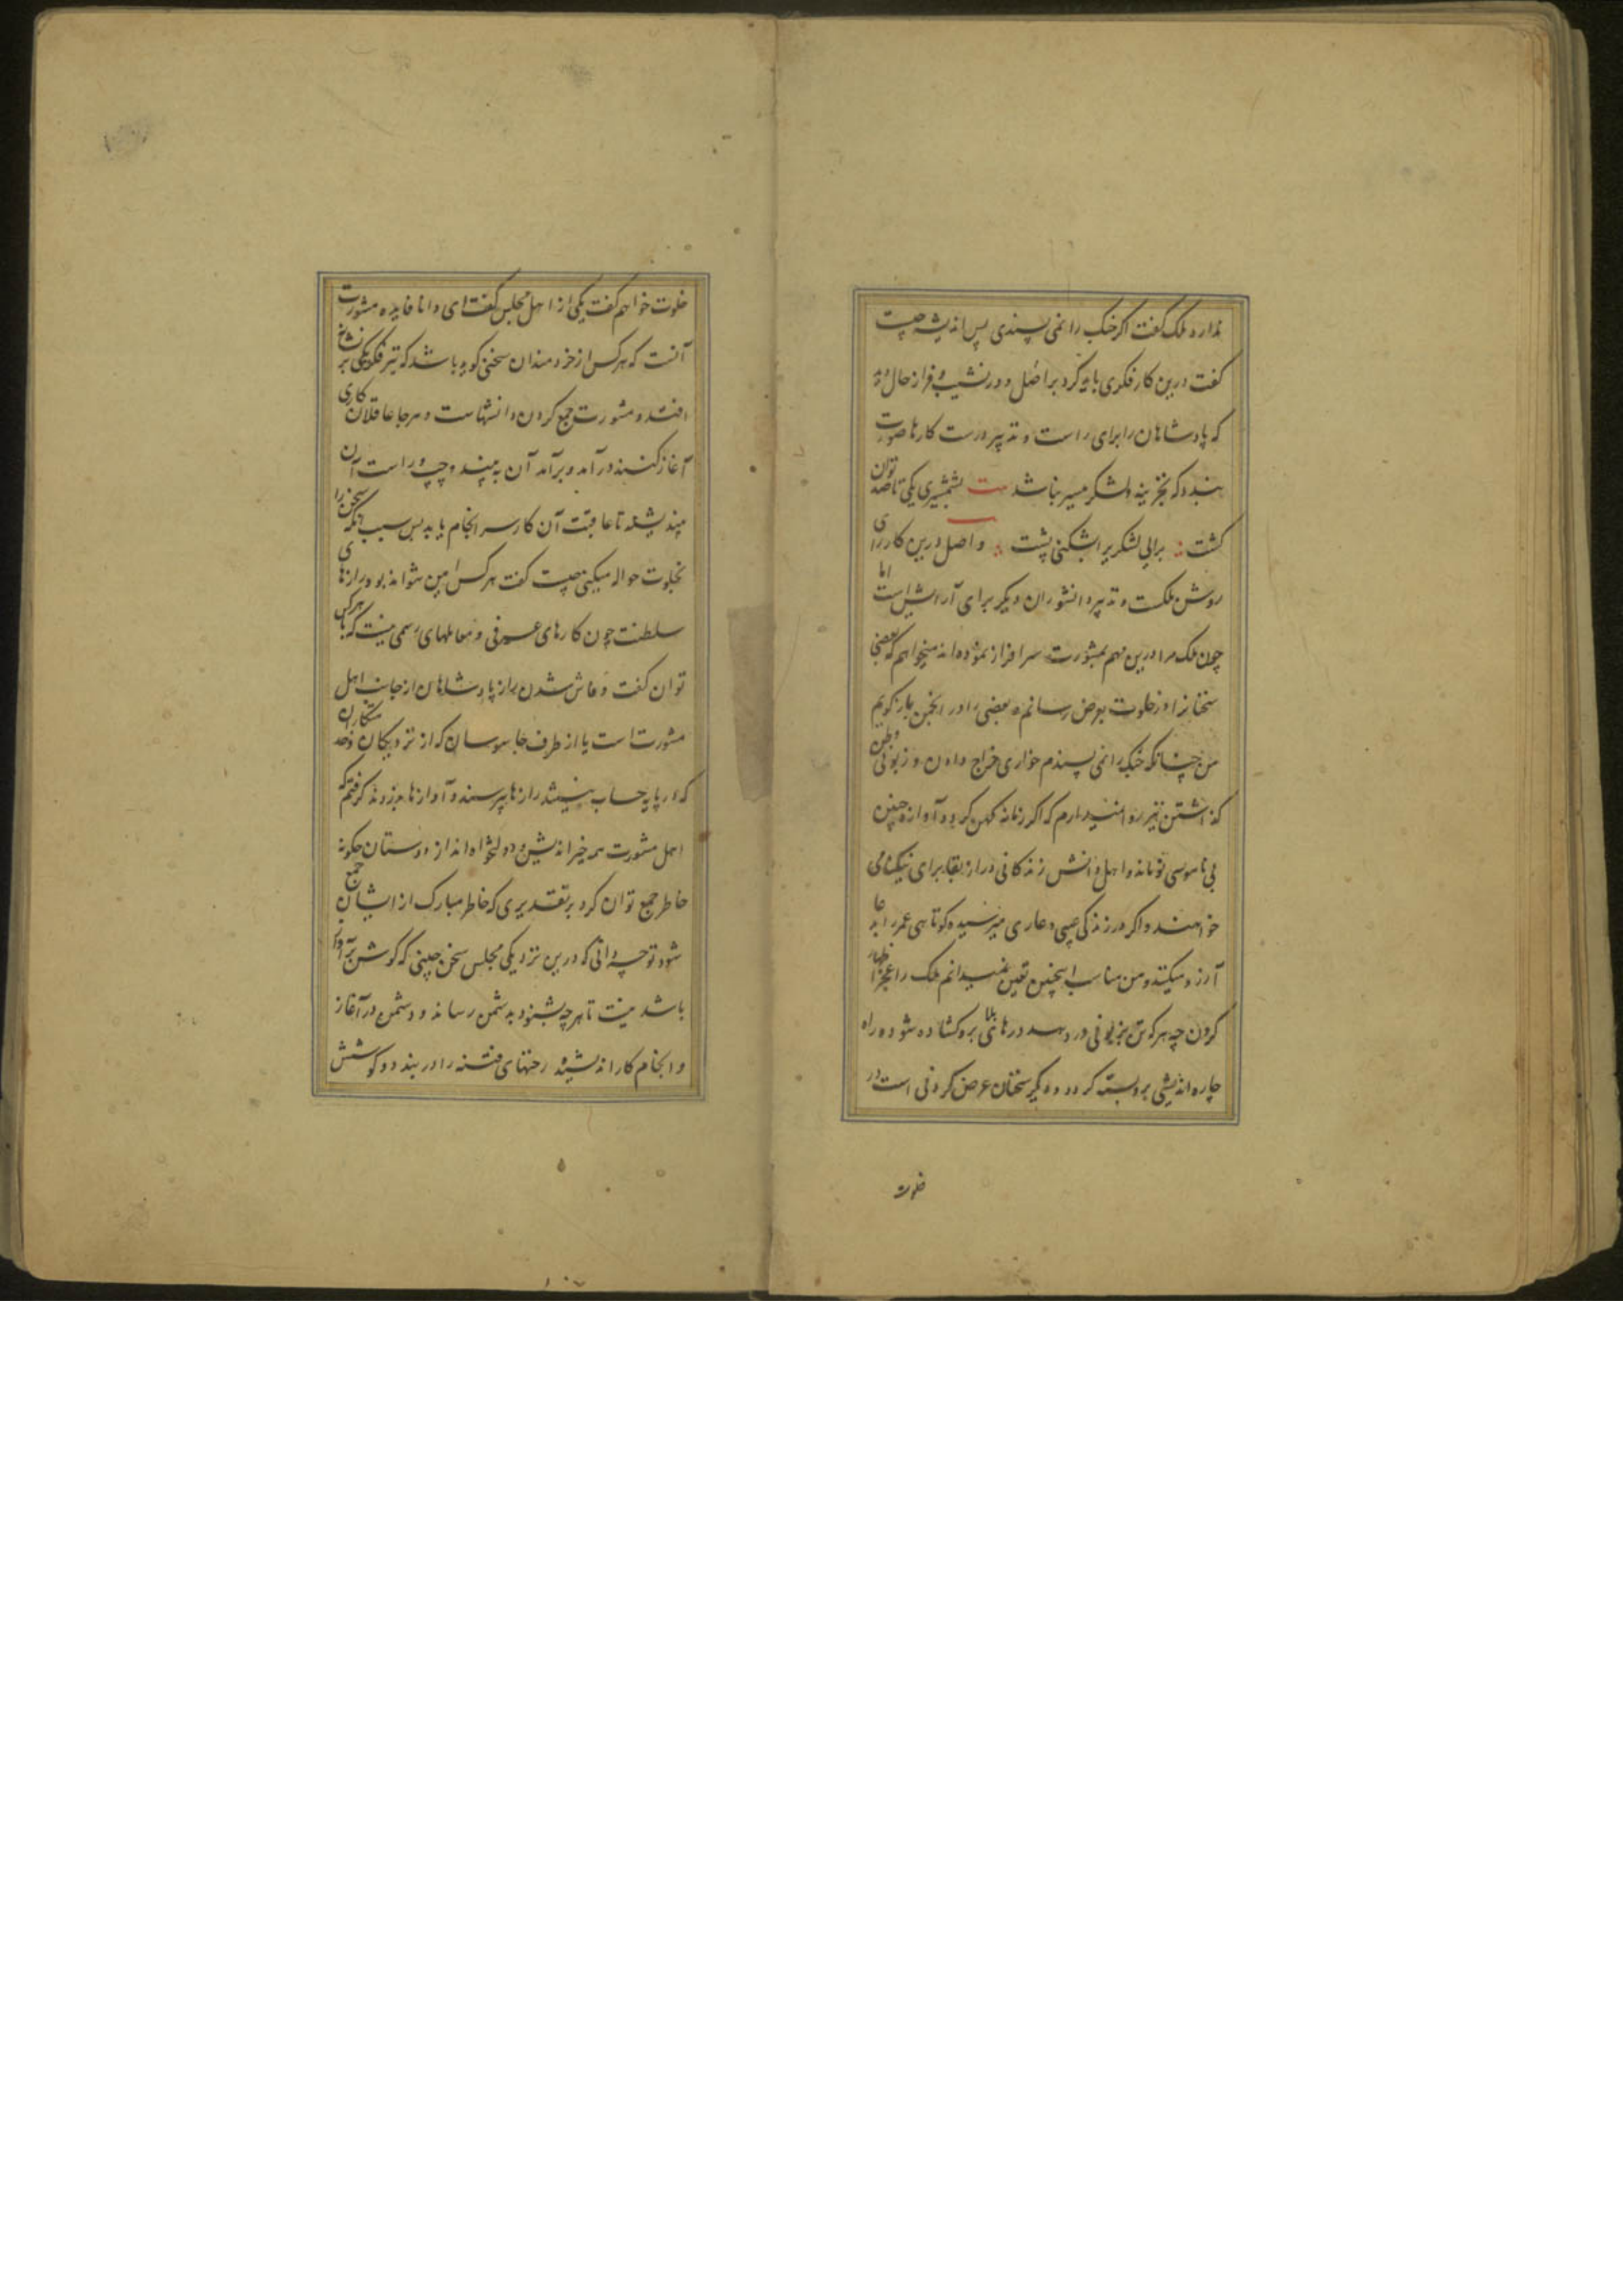 ندارد ملک گفت اگر جنگ را نمی پسندی پس اندیشه چیست
گفت درین کار فکری باید کرد بر اصل و در نشیب و فراز حال دید
که پادشاهان را برای راست و تدبیر درست کارها صورت
بندد که بخزینه و لشکر میسر نباشد بیت بشمشیری یکی تا صد توان
کشت برایی لشکری را بشکنی پشت و اصل درین کار رای
روشن ملکست و تدبیر دانشوران دیگر برای آرایش است اما
چون ملک مرا درین مهم بمشورت سرافراز نموده اند میخواهم که بعضی
سخنانرا در خلوت بعرض رسانم و بعضی را در انجمن باز گویم
من چنانکه جنگ را نمی پسندم خواری خراج دادن و زبونی وطن
گذاشتن نیز روا نمیدارم که اگر زمانه کهن گردد آوازه چنین
بی ناموسی نو ماند و اهل دانش زندگانی دراز بقا برای نیکنامی
خواهند و اگر در زندگی عیبی و عاری میرسیده کوتاهی عمر را بدعا
آرزو میکنند و من مناسب اینچنین تعین نمیدانم ملک را اظهار عجز
کردن چه هر که تن بزبونی در دهد درهای بلا برو کشاده شود و راه
چاره اندیشی برو بسته گردد و دیگر سخنان عرض کردنی است در
خلوت
خلوت خواهم گفت یکی از اهل مجلس گفت ای دانا فایده مشورت
آنست که هر کس از خردمندان سخنی گوید باشد که تیر فکر یکی بر نشانه
افتد و مشورت جمع کردن دانشهاست و هر جا عاقلان کاری
آغاز کنند درآمد و برآمد آن به بینند و چپ و راست آن
بیندیشند تا عاقبت آن کار سرانجام یابد پس سبب آنکه سخن را
بخلوت حواله میکنی چیست گفت هر کس امین نتواند بود رازهای
سلطنت چون کارهای عرفی و معاملهای رسمی نیست که با هرکس
توان گفت و فاش شدن راز پادشاهان از جانب اهل
مشورت است یا از طرف جاسوسان که از نزدیکان و خدمتکاران
که در پایه حساب نیستند رازها بپرسند و آوازها بدزدند گرفتم که
اهل مشورت همه خیراندیش و دولتخواه اند از دوستان چگونه
خاطر جمع توان کرد بر تقدیری که خاطر مبارک از ایشان جمع
شود تو چه دانی که درین نزدیکی مجلس سخن چینی که گوش بر آواز
باشد نیست تا هر چه بشنود بدشمن رساند و دشمن در آغاز
و انجام کار اندیشیده رخنهای فتنه را در بندد و کوشش